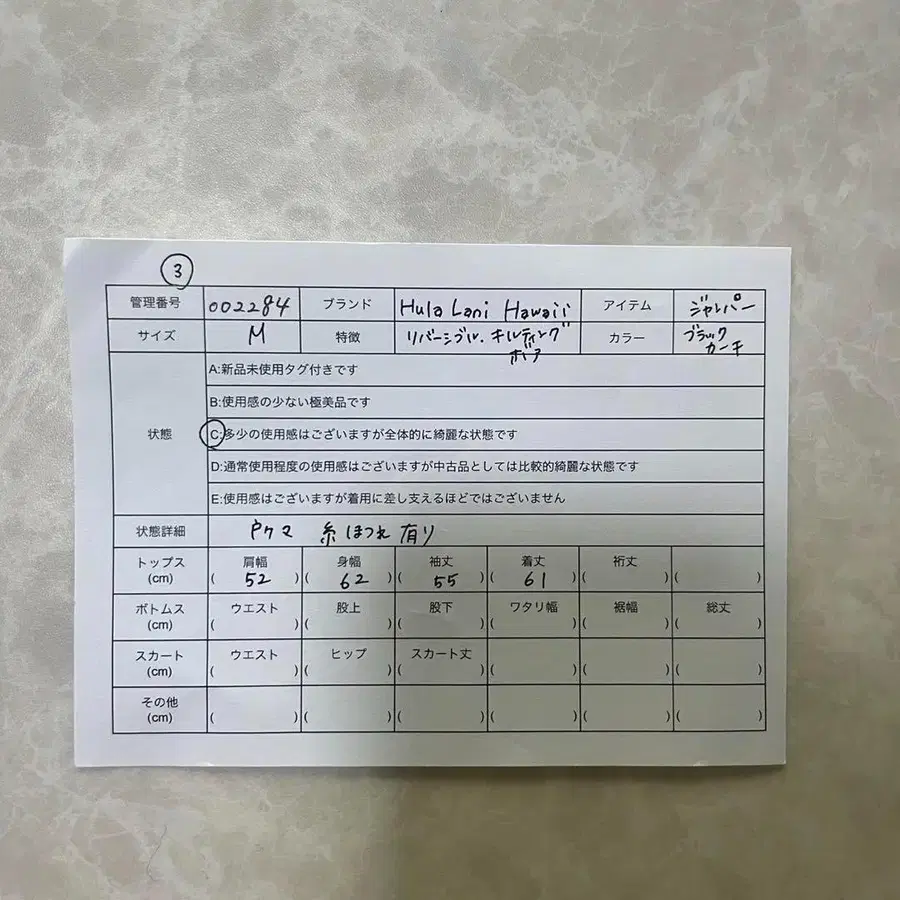 ③
管理番号 002284 ブランド Hula Lani Hawaii アイテム ジャンパー
サイズ M 特徴 リバーシブル.キルティング カラー ブラック
ボア カーキ
A:新品未使用タグ付きです
B:使用感の少ない極美品です
状態 C:多少の使用感はございますが全体的に綺麗な状態です
D:通常使用程度の使用感はございますが中古品としては比較的綺麗な状態です
E:使用感はございますが着用に差し支えるほどではございません
状態詳細 糸ほつれ有り
トップス 肩幅 身幅 袖丈 着丈 裄丈
(cm) ( 52 ) ( 62 ) ( 55 ) ( 61 ) ( ) ( )
ボトムス ウエスト 股上 股下 ワタリ幅 裾幅 総丈
(cm) ( ) ( ) ( ) ( ) ( ) ( )
スカート ウエスト ヒップ スカート丈
(cm) ( ) ( ) ( ) ( ) ( ) ( )
その他
(cm) ( ) ( ) ( ) ( ) ( ) ( )